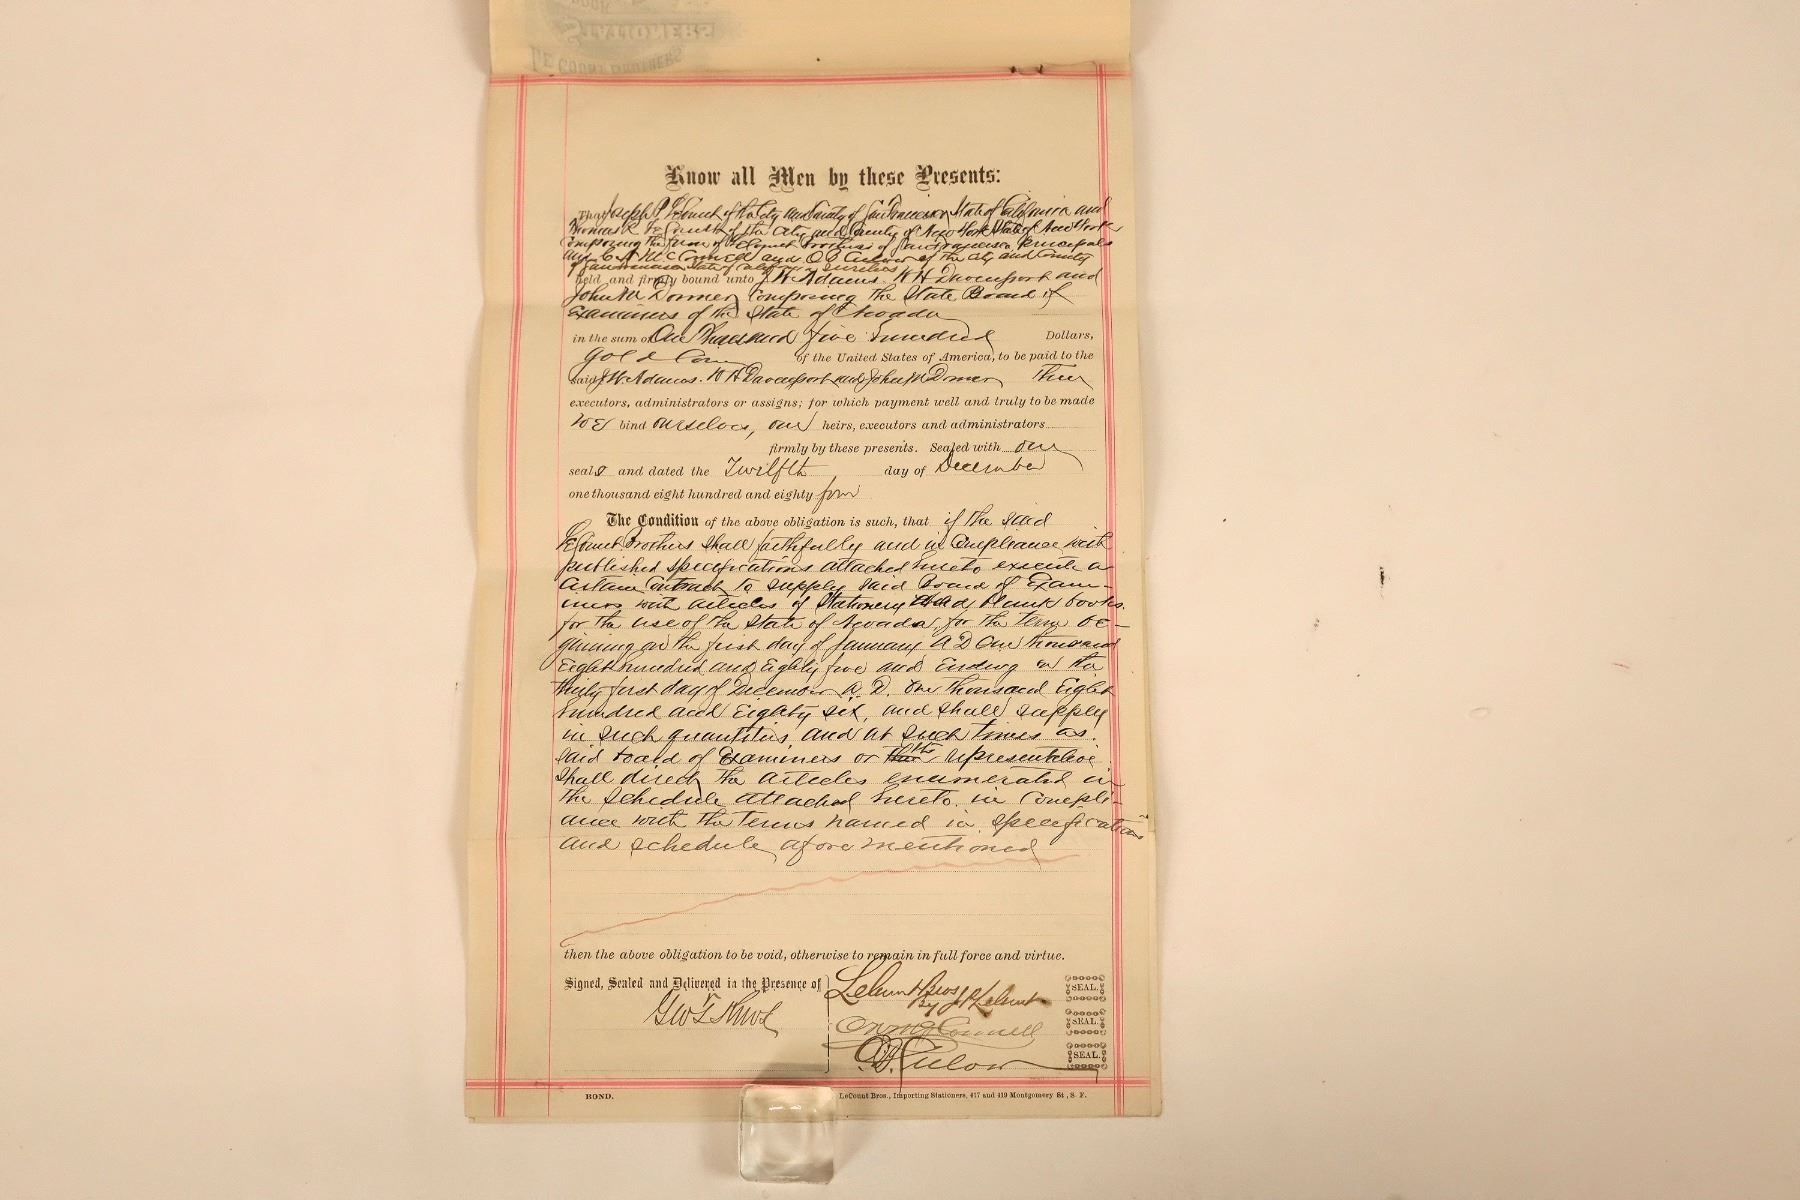 STATIONERS
LE COUNT BROTHERS
Know all Men by these Presents:
That Joseph P. LeCount of the City and County of San Francisco State of California and
Thomas R. Le Count of the City and County of New York State of New York
Composing the firm of LeCount Brothers of San Francisco, Principals
and McConnell and of the City and County
of San Francisco State of California sureties
held and firmly bound unto J. W. Adams. W H Davenport and
John M Dormer Composing the State Board of
Examiners of the State of Nevada
in the sum of One Thousand five hundred Dollars,
gold Coin of the United States of America, to be paid to the
said J. W. Adams. W H Davenport and John M Dormer Their
executors, administrators or assigns; for which payment well and truly to be made
We bind ourselves, our heirs, executors and administrators
firmly by these presents. Sealed with our
seals and dated the Twelfth day of December
one thousand eight hundred and eighty four
The Condition of the above obligation is such, that if the said
LeCount Brothers shall faithfully and in Compliance with
published specifications attached hereto execute a
certain Contract to supply said Board of Exam-
iners with articles of Stationery and blank books.
for the use of the State of Nevada, for the term be-
ginning on the first day of January A D One thousand
Eight hundred and Eighty five and Ending on the
thirty first day of December A. D. One thousand Eight
hundred and Eighty six, and shall supply
in such quantities and at such times as
said Board of Examiners or its representative
shall direct the articles enumerated in
the schedule attached hereto in Compli-
ance with the terms named in specifications
and schedule afore mentioned
then the above obligation to be void, otherwise to remain in full force and virtue.
Signed, Sealed and Delivered in the Presence of
LeCount Bros SEAL.
By J P LeCount
McConnell SEAL.
SEAL.
BOND.
LeCount Bros., Importing Stationers, 417 and 419 Montgomery St., S. F.